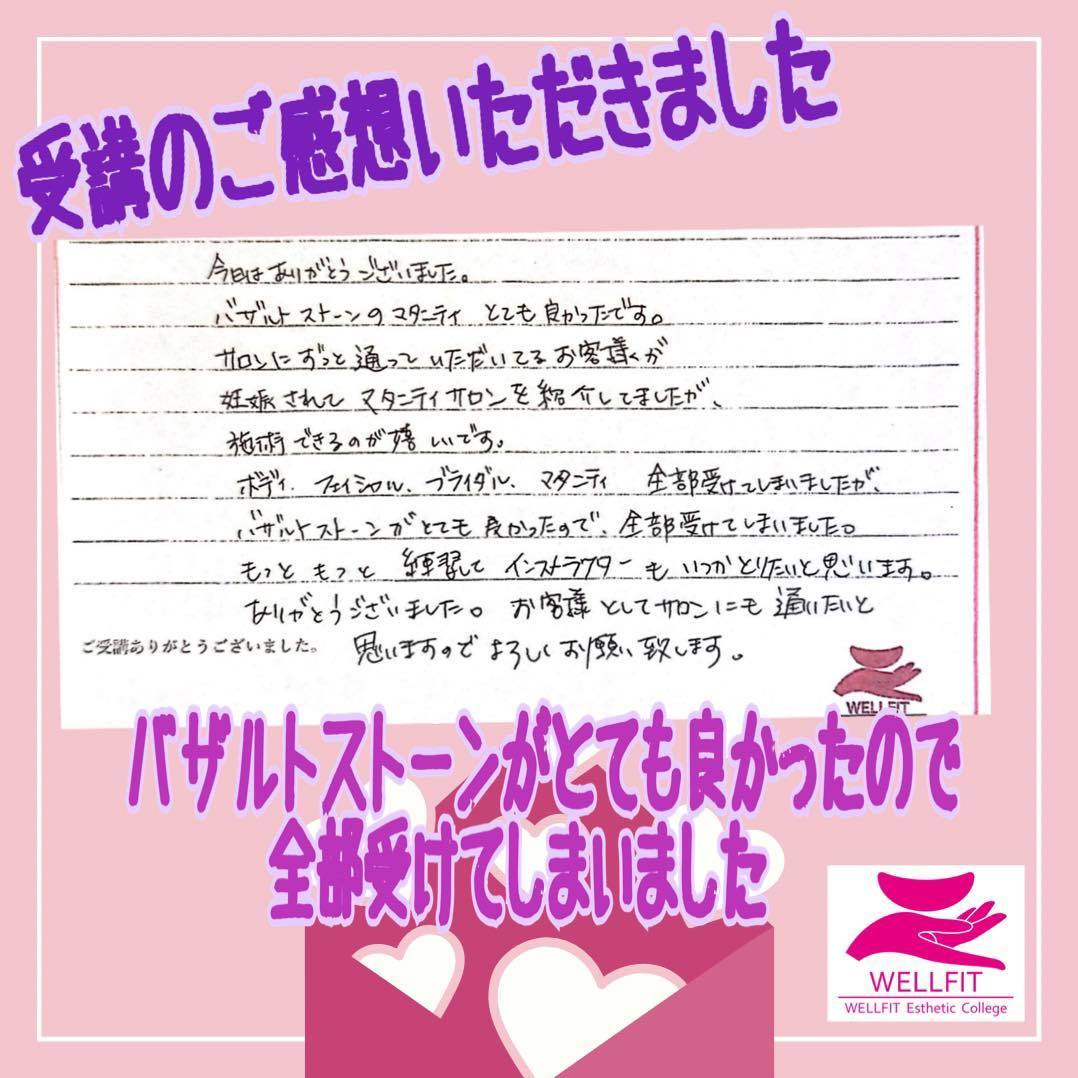 受講のご感想いただきました
今日はありがとうございました。
バザルトストーンのマタニティ とても良かったです。
サロンにずっと通っていただいてるお客様が
妊娠されて マタニティサロンを紹介してましたが、
施術できるのが嬉しいです。
ボディ、フェイシャル、ブライダル、マタニティ 全部受けてしまいましたが、
バザルトストーンがとても良かったので、全部受けてしまいました。
もっと もっと 練習して インストラクターも いつかとりたいと思います。
ありがとうございました。 お客様としてサロンにも 通いたいと
ご受講ありがとうございました。 思いますので よろしくお願い致します。
WELLFIT
バザルトストーンがとても良かったので
全部受けてしまいました
WELLFIT
WELLFIT Esthetic College